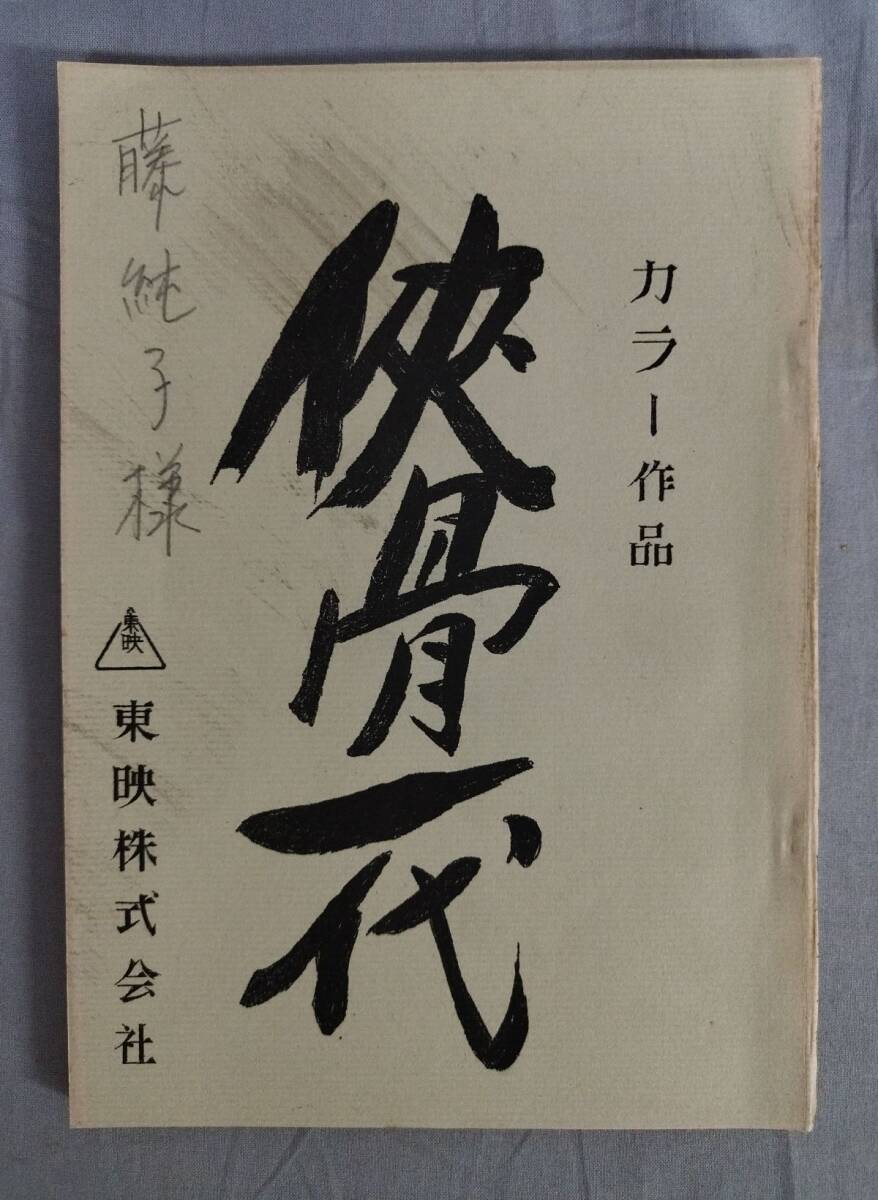 カラー作品
侠骨一代
藤純子様
東映
東映株式会社